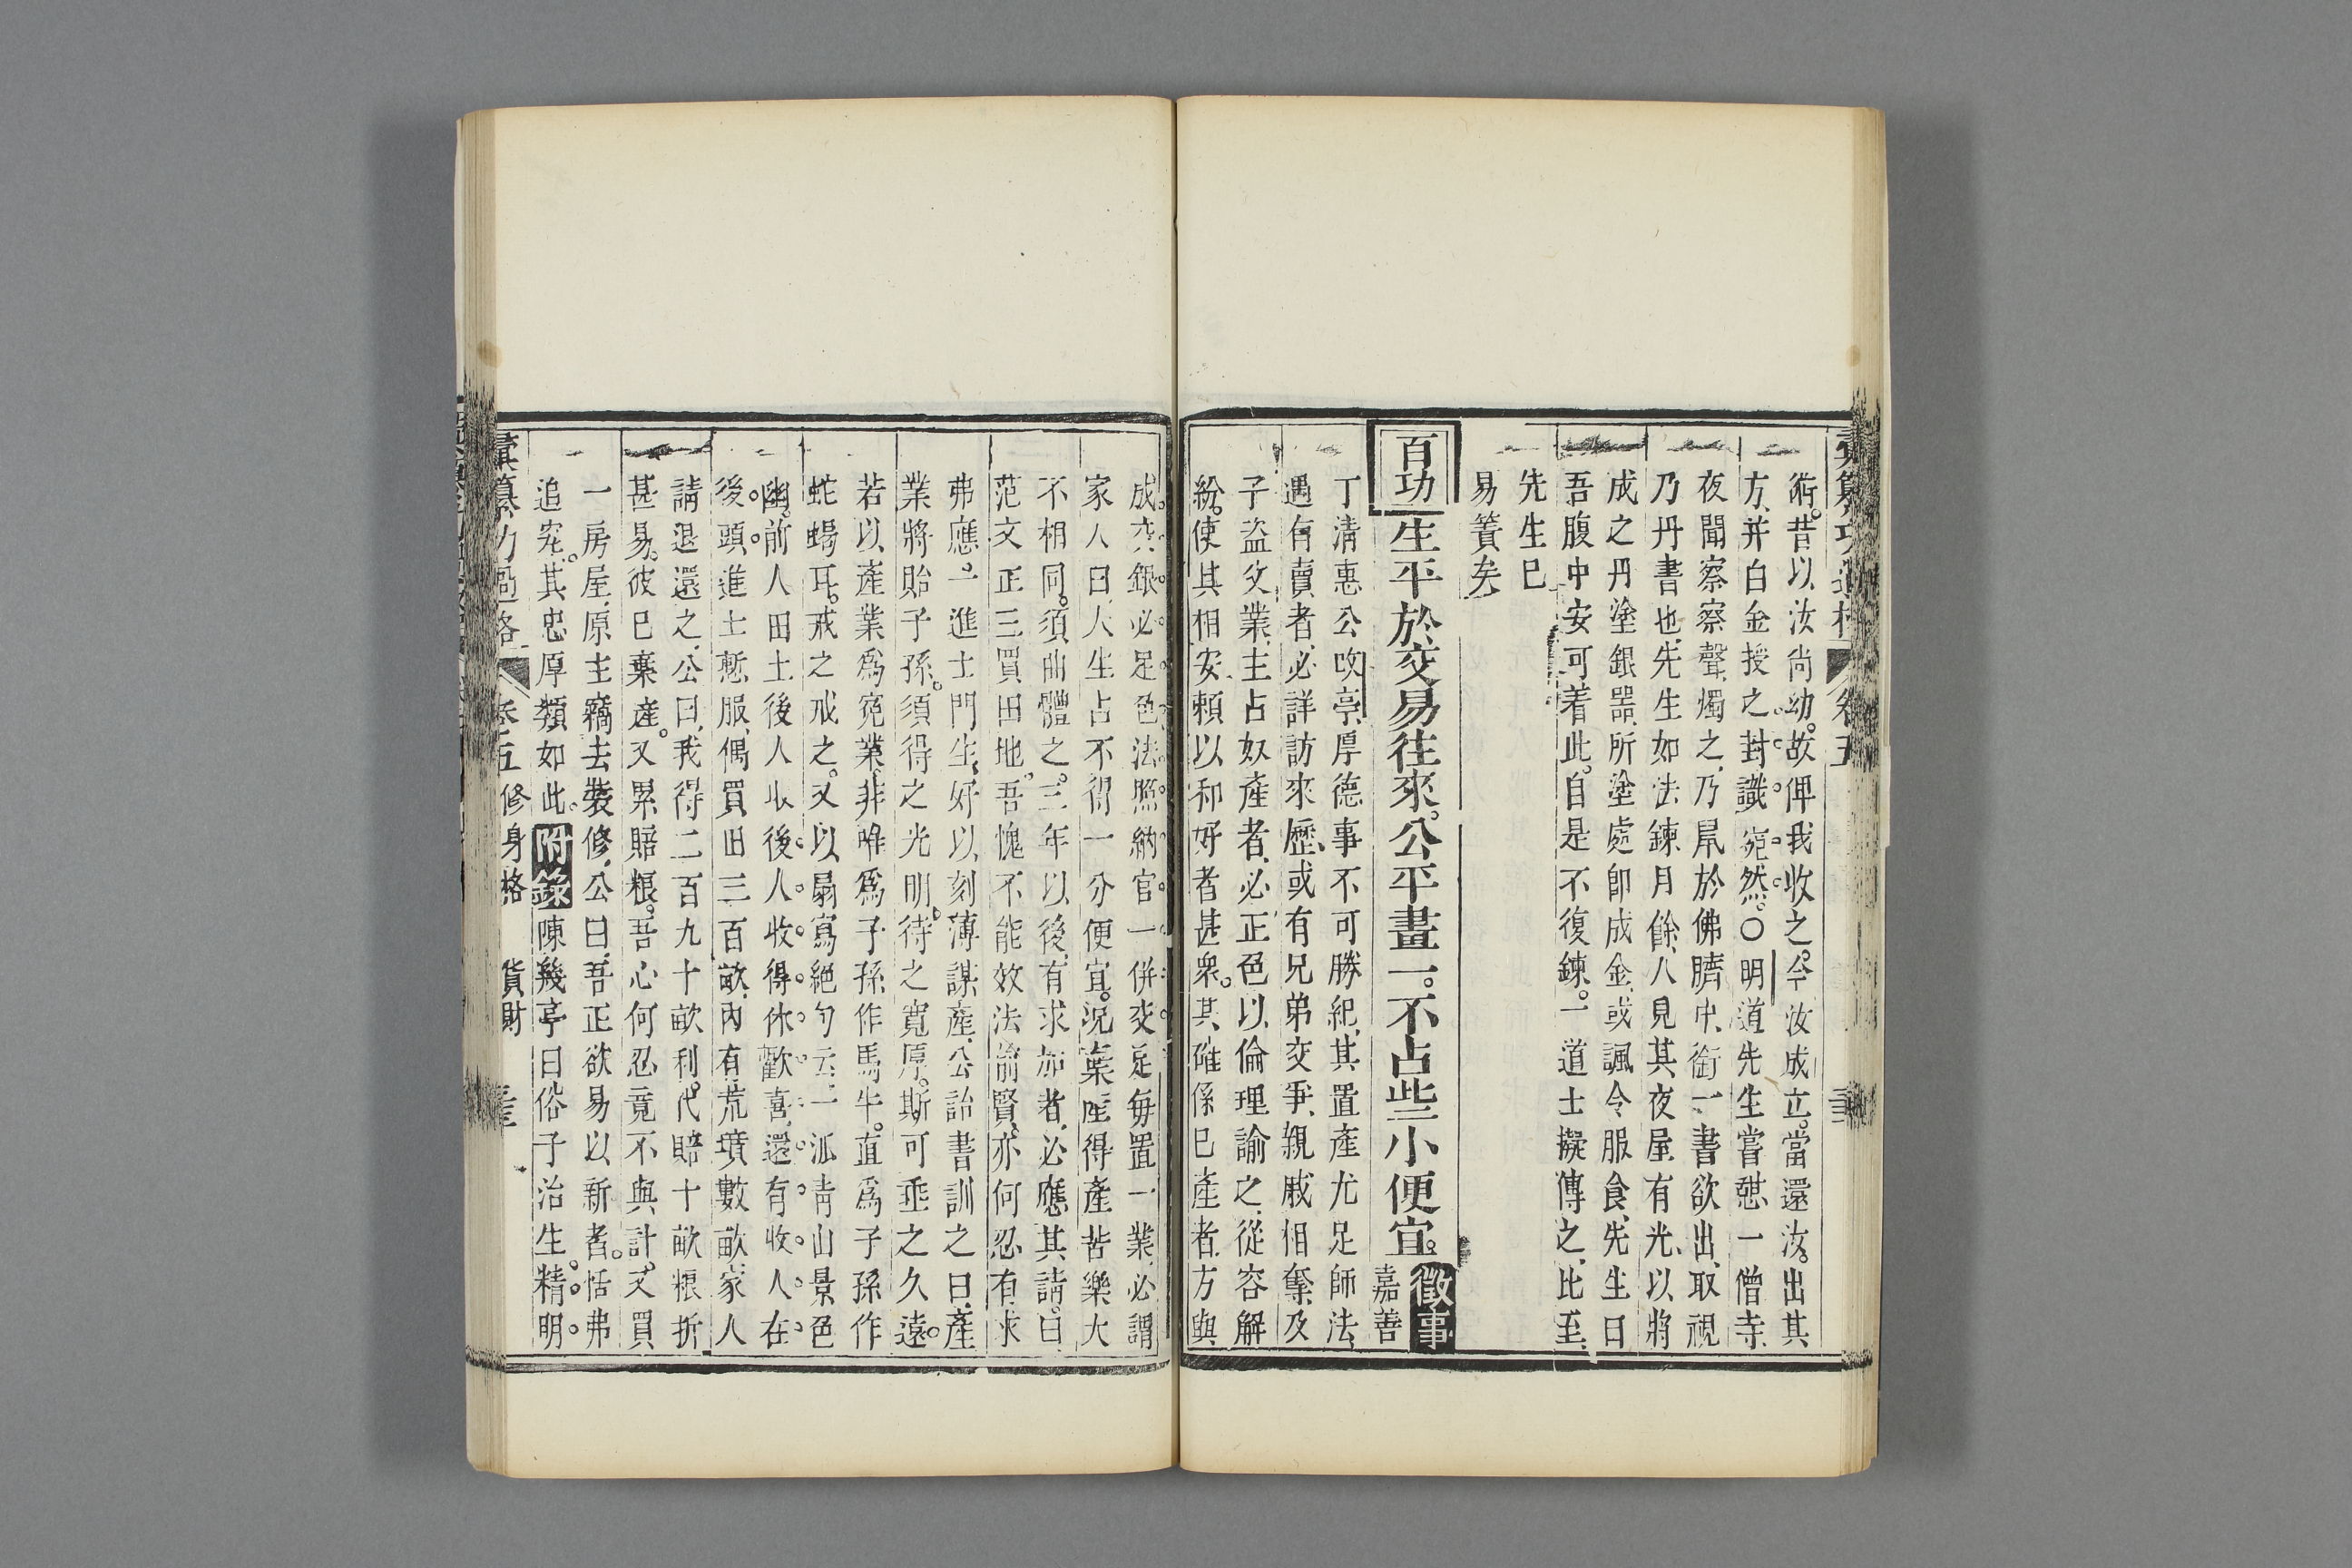 彙纂功過格 卷五
術。昔以汝尚幼。故俾我收之。今汝成立。當還汝。出其
方、并白金授之。封識宛然。○明道先生嘗憇一僧寺、
夜聞察察聲、燭之、乃鼠於佛臍中、銜一書欲出、取視
乃丹書也、先生如法鍊月餘、人見其夜屋有光、以將
成之丹塗銀器、所塗處卽成金、或諷令服食、先生曰
吾腹中安可着此。自是不復鍊。一道士擬傳之、比至、
先生已
易簀矣
百功 生平於交易往來。公平畫一。不占些小便宜。徵事 嘉善
丁清惠公改亭、厚德事不可勝紀、其置產尤足師法、
遇有賣者、必詳訪來歷、或有兄弟交爭、親戚相奪、及
子盜父業、主占奴產者、必正色以倫理諭之、從容解
紛。使其相安、賴以和好者甚衆。其確係已產者、方與
成交、銀必足色、法照納官、一併交足、每置一業、必謂
家人曰、人生占不得一分便宜。況棄產得產苦樂大
不相同。須曲體之。三年以後、有求加者、必應其請。曰、
范文正三買田地。吾愧不能效法前賢、亦何忍有求
弗應。一進士門生、好以刻薄謀產、公詒書訓之曰、產
業將貽子孫。須得之光明、待之寬厚。斯可垂之久遠。
若以產業爲寃業、非唯爲子孫作馬牛。直爲子孫作
蛇蝎耳。戒之戒之。又以扇寫絕句云、一泒靑山景色
幽。前人田土後人收、後人收得休歡喜、還有收人在
後頭。進士慙服、偶買田三百畝、內有荒墳數畝、家人
請退還之、公曰、我得二百九十畝利。代賠十畝粮折
甚易。彼已棄產。又累賠粮。吾心何忍、竟不與計。又買
一房屋、原主竊去裝修、公曰、吾正欲易以新者。恬弗
追究。其忠厚類如此。附錄 陳幾亭曰、俗子治生。精明。
彙纂功過格 卷五 修身格 貨財